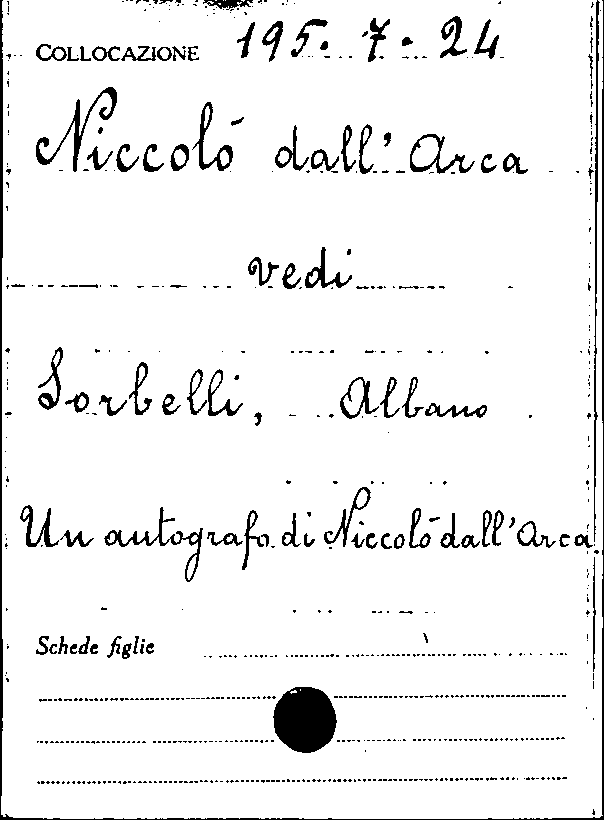 COLLOCAZIONE 195. 7. 24
Niccolò dall'Arca
vedi
Sorbelli, Albano
Un autografo di Niccolò dall'Arca
Schede figlie